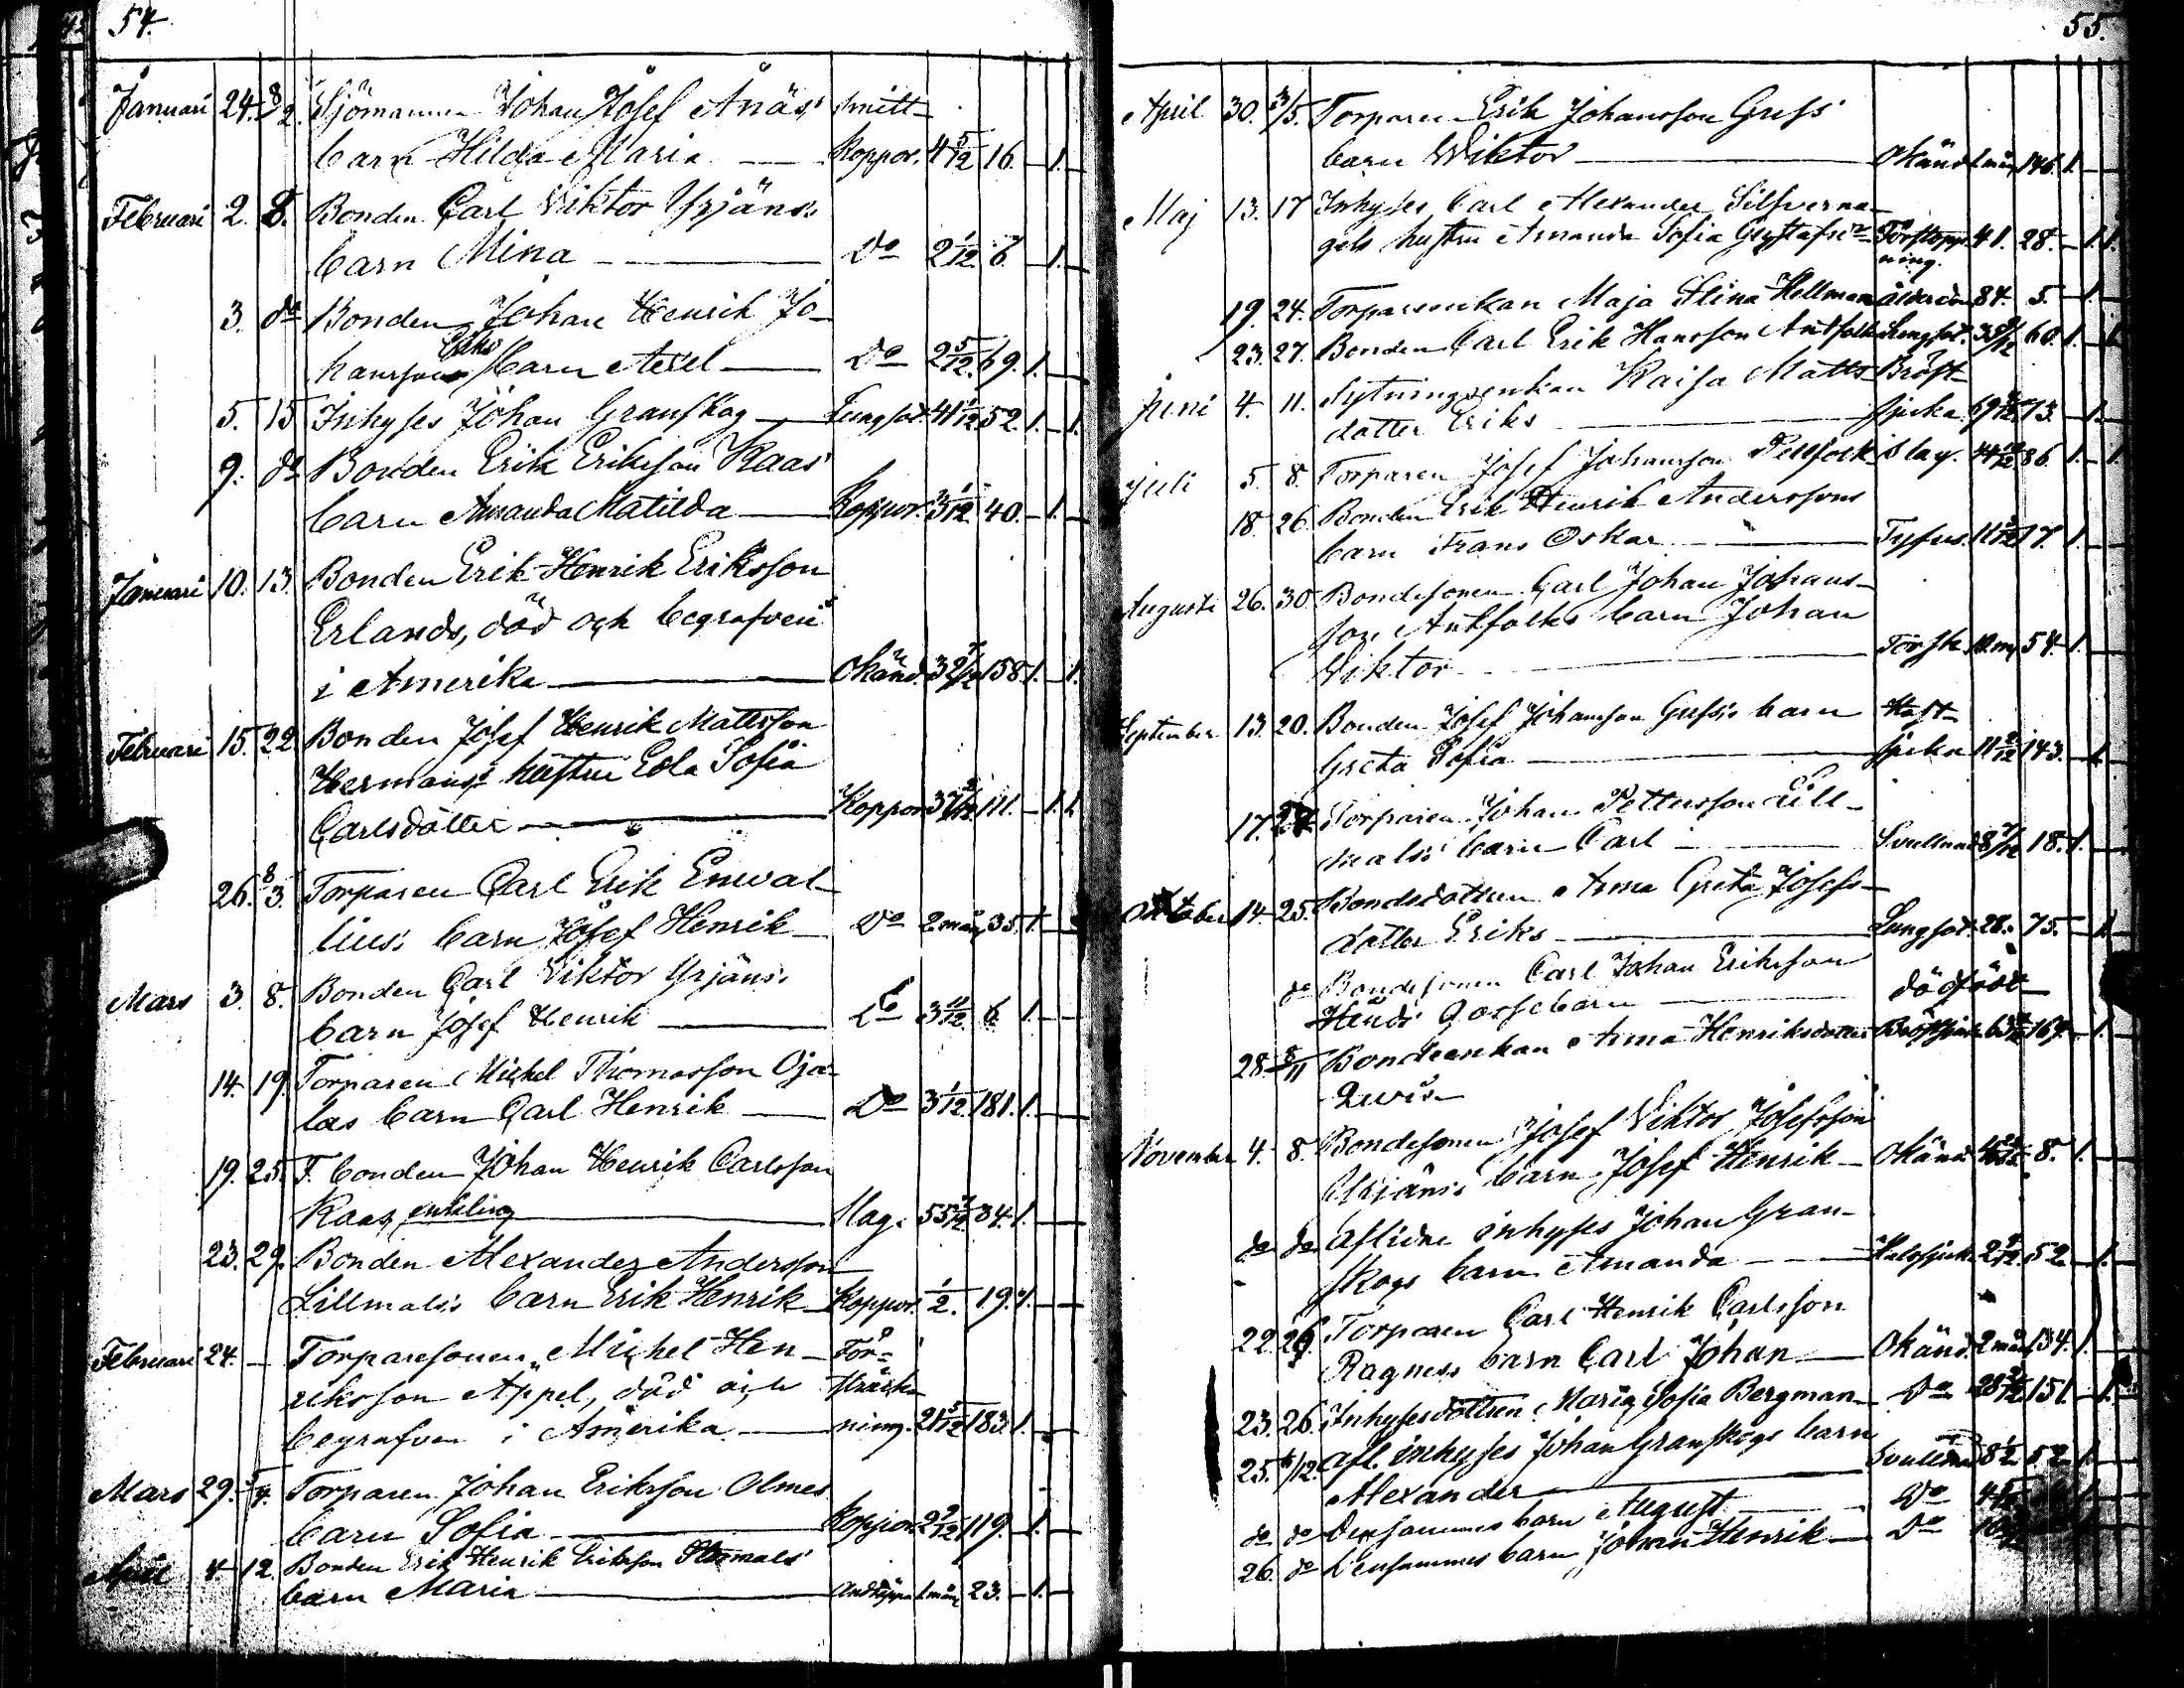 54.
Januari 24. 8/2. Sjömannen Johan Josef Anäs' smitt-
barn Hilda Maria — Koppor. 4 5/12 16. — 1. —
Februari 2. 8. Bonden Carl Viktor Yrjäns:
barn Mina — Do 2 1/12 6. — 1. —
3. do Bonden Johan Henrik Jo-
hansson Eriks barn Axel — Do 2 5/12. 69. 1. —
5. 15 Inhyses Johan Granskog — Lungsot. 41 1/12 52. 1. — 1.
9. do Bonden Erik Eriksson Kaas'
barn Amanda Matilda — Koppor. 3 1/12 40. — 1. —
Januari 10. 13. Bonden Erik Henrik Eriksson
Erlands, död och begrafven
i Amerika — Okänd. 32 7/12 158 1. — 1.
Februari 15. 22 Bonden Josef Henrik Mattsson
Hermans: hustru Eola Sofia
Carlsdotter — Koppor 37 111. — 1. 1.
26. 8/3. Torparen Carl Erik Enwal-
lius: barn Josef Henrik — Do 2 mån 35. 1. —
Mars 3. 8. Bonden Carl Viktor Yrjäns:
barn Josef Henrik — Do 3 11/12 6 1. —
14. 19. Torparen Michel Thomasson Oja-
las barn Carl Henrik — Do 3 1/12 181. 1. —
19. 25. F. bonden Johan Henrik Carlsson
Kaas, enkling — Slag. 55 84. 1. —
23. 29. Bonden Alexander Andersson
Lillmals: barn Erik Henrik — Koppor. 1/2. 19. 1. —
Februari 24. — Torparesonen Michel Hen- För-
riksson Appel, död och sträck-
begrafven i Amerika — ning. 21 5/12 183. 1. —
Mars 29. Torparen Johan Eriksson Olmes
barn Sofia — Koppor. 2 9/12 119. — 1. —
April 4. 12. Bonden Erik Henrik Eriksson
barn Maria — Andtäppa 1 mån 23. — 1. —
55.
April 30. Torparen Erik Johansson Guss'
barn Wiktor — Okänd 1 mån 146. 1. —
Maj 13. 17 Inhyses Carl Alexander Silfverna-
gels hustru Amanda Sofia Gustafsdr Förstopp- 41. 28. — 1. 1.
ning.
19. 24. Torpareenkan Maja Stina Hellman ålderdom 84. 5. — 1. —
23. 27. Bonden Carl Erik Hansson Antfolk Lungsot. 60. 1. — 1.
Juni 4. 11. Sytningsenkan Kaisa Matts- Bröst-
dotter Eriks — sjuka 69 73. — 1. —
Juli 5. 8. Torparen Josef Johansson slag. 44 86. 1. — 1.
18. 26. Bonden Erik Henrik Anderssons
barn Frans Oskar — Tyfus. 11 17. 1. —
Augusti 26. 30. Bondesonen Carl Johan Johans-
son Antfolks barn Johan
Viktor — Torsk 10 mån 54. 1. —
September 13. 20. Bonden Josef Johansson Guss's barn Hals-
Greta Sofia — sjuka 11 2/12 143. — 1.
17. 27. Torparen Johan Pettersson Lill-
mals: barn Carl — Svullnad 8 7/12 18. 1. —
Oktober 14. 25. Bondedottren Anna Greta Josefs-
dotter Eriks — Lungsot. 28. 75. — 1.
do Bondesonen Carl Johan Eriksson
Gossebarn — dödfödt
28. 8/11 Bondeenkan Anna Henriksdotter Bröstsjuka 167. — 1. —
November 4. 8. Bondesonen Josef Viktor Josefsson
Yrjäns: barn Josef Henrik — Okänd 8. 1. —
do do Aflidne inhyses Johan Gran-
skogs barn Amanda — Halssjuka 2 52. — 1. —
22. 26. Torparen Carl Henrik Carlsson
Ragness barn Carl Johan — Okänd. 2 mån 134. 1. —
23. 26. Inhysesdottren Maria Sofia Bergman — Do 28 151. — 1.
25. 6/12. Afl. inhyses Johan Granskogs barn
Alexander — Svullnad 8 1/2 52 1. —
do do Densammes barn August — Do
26. do Densammes barn Johan Henrik — Do